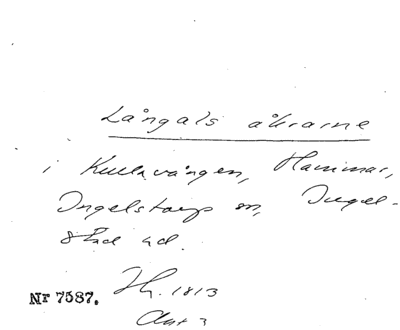 Långals åkrarne
i Kullavången, Hammar,
Ingelstorp sn, Ingel-
stad hd.
Nr 7587. Jh. 1813
Akt 3